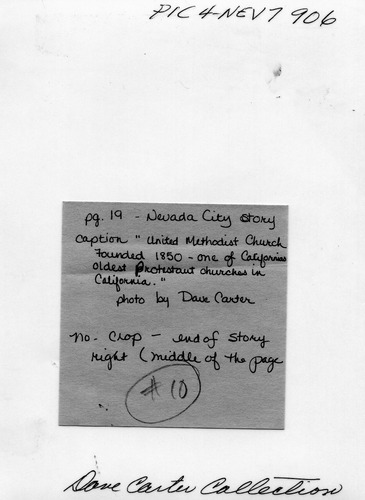 PIC 4-NEV7 906
pg. 19 - Nevada City story
caption " United Methodist Church
Founded 1850 - one of Californias
oldest Protestant churches in
California. "
photo by Dave Carter
no - crop - end of story
right (middle of the page
# 10
Dave Carter Collection